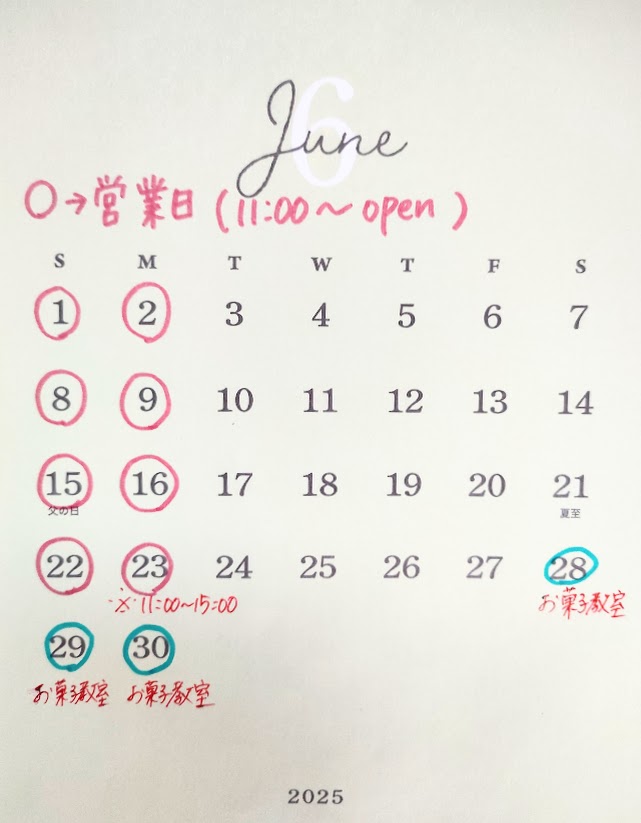 6
June
○→営業日(11:00〜open)
S M T W T F S
1 2 3 4 5 6 7
8 9 10 11 12 13 14
15 16 17 18 19 20 21
父の日 夏至
22 23 24 25 26 27 28
※11:00~15:00 お菓子教室
29 30
お菓子教室 お菓子教室
2025